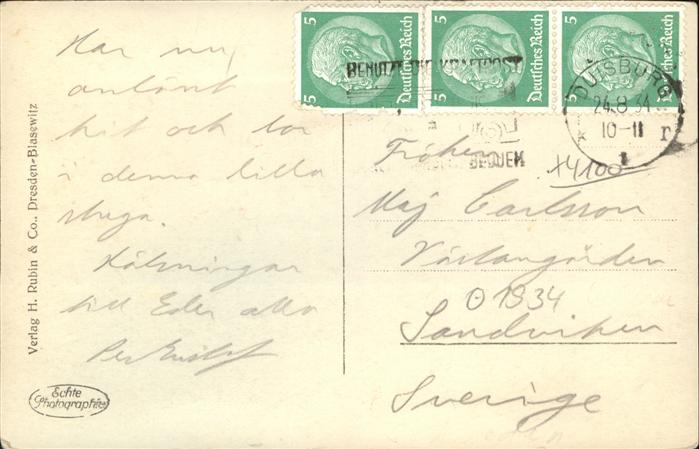 Har nu
anlänt
hit och bor
i denna lilla
stuga.
Hälsningar
till Eder alla
Per Gustaf
Verlag H. Rubin & Co., Dresden-Blasewitz
Echte
Photographie
5 Deutsches Reich
5 Deutsches Reich
5 Deutsches Reich
BENUTZT DIE KRAFTPOST
DUISBURG
24.8.34
10-11
r
Fröken
+4100
Maj Carlsson
Västangården
O 1934
Sandviken
Sverige